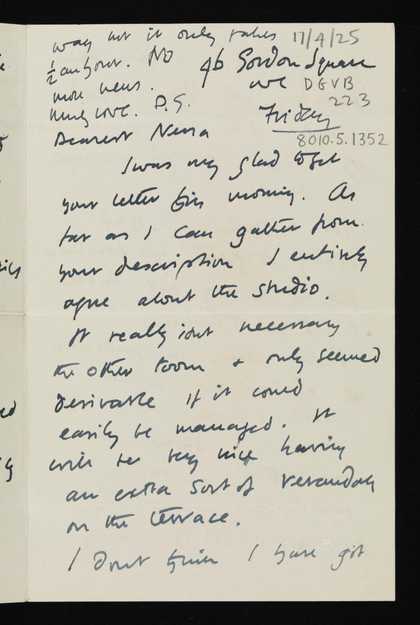 way but it only takes 17/4/25
½ an hour. No 46 Gordon Square
more news. WC DGVB
Much love. D.G. 223
Friday
8010.5.1352
Dearest Nessa
I was very glad to get
your letter this morning. As
far as I can gather from
your description I entirely
agree about the studio.
It really isnt necessary
the other room & only seemed
desirable if it could
easily be managed. It
will be very nice having
an extra sort of verandah
on the terrace.
I dont think I have got